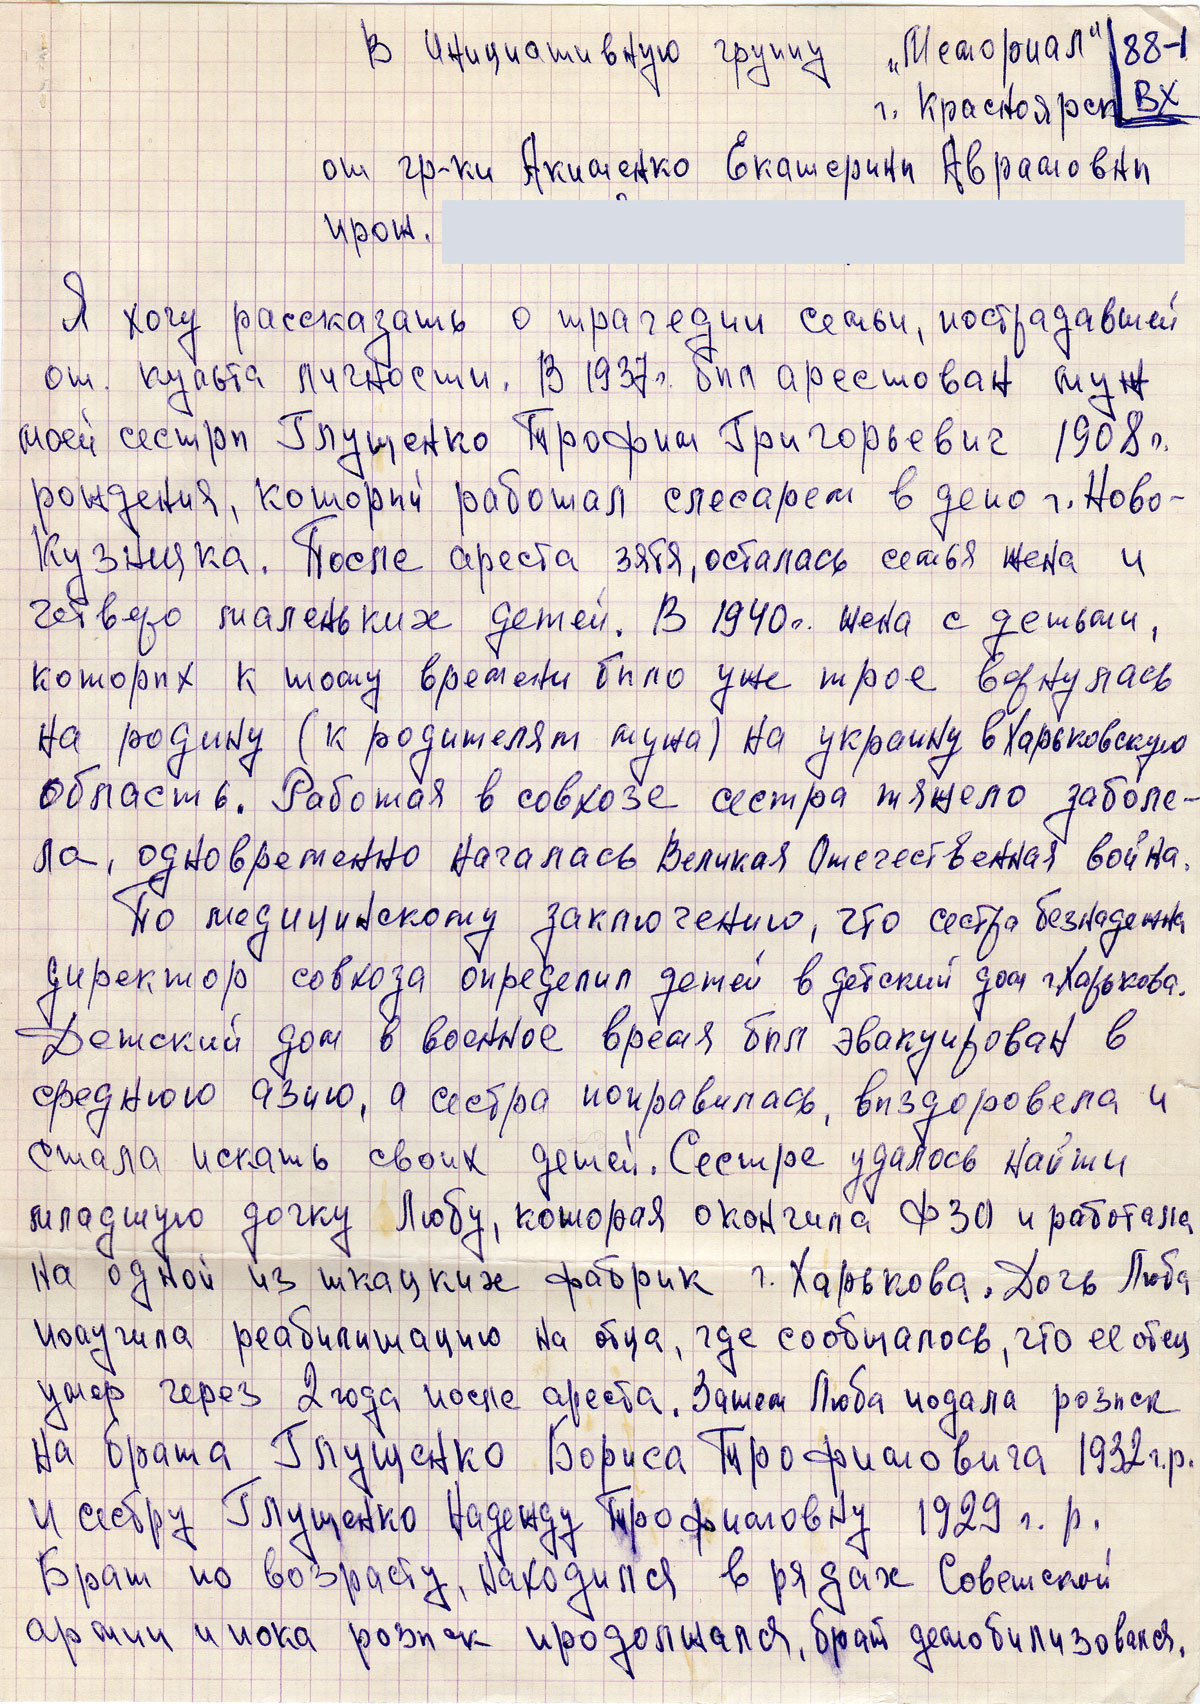 В Инициативную группу „Мемориал" 88-1
г. Красноярск ВХ
от гр-ки Акименко Екатерины Аврамовны
прож.
Я хочу рассказать о трагедии семьи, пострадавшей
от культа личности. В 1937г. был арестован муж
моей сестры Глущенко Трофим Григорьевич 1908г.
рождения, который работал слесарем в депо г. Ново-
Кузнецка. После ареста зятя, осталась семья жена и
четверо маленьких детей. В 1940г. жена с детьми,
которых к тому времени было уже трое вернулась
на родину (к родителям мужа) на украину в Харьковскую
область. Работая в совхозе сестра тяжело заболе-
ла, одновременно началась Великая Отечественная война.
По медицинскому заключению, что сестра безнадежна
директор совхоза определил детей в детский дом г. Харькова.
Детский дом в военное время был эвакуирован в
среднюю азию, а сестра поправилась, выздоровела и
стала искать своих детей. Сестре удалось найти
младшую дочку Любу, которая окончила ФЗО и работала
на одной из ткацких фабрик г. Харькова. Дочь Люба
получила реабилитацию на отца, где сообщалось, что ее отец
умер через 2 года после ареста. Затем Люба подала розыск
на брата Глущенко Бориса Трофимовича 1932г.р.
и сестру Глущенко Надежду Трофимовну 1929 г. р.
Брат по возрасту, находился в рядах Советской
армии и пока розыск продолжался, брат демобилизовался.